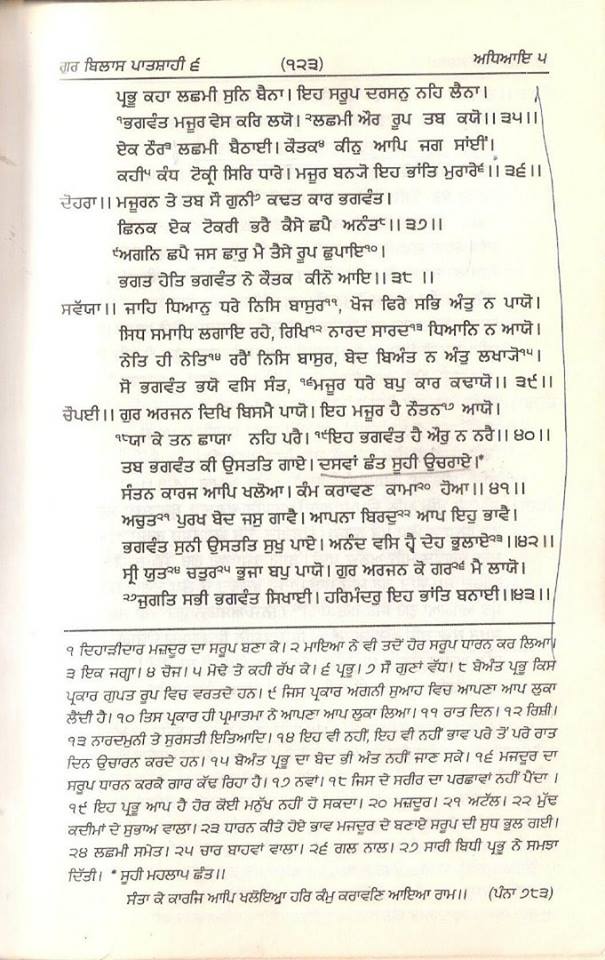 ਗੁਰ ਬਿਲਾਸ ਪਾਤਸ਼ਾਹੀ ੬ (੧੨੩) ਅਧਿਆਇ ੫
ਪ੍ਰਭੂ ਕਹਾ ਲਛਮੀ ਸੁਨਿ ਬੈਨਾ। ਇਹ ਸਰੂਪ ਦਰਸਨੁ ਨਹਿ ਲੈਨਾ।
੧ਭਗਵੰਤ ਮਜੂਰ ਵੇਸ ਕਰਿ ਲਯੋ। ੨ਲਛਮੀ ਔਰ ਰੂਪ ਤਬ ਕਯੋ।।੩੫।।
ਏਕ ਠੌਰ੩ ਲਛਮੀ ਬੈਠਾਈ। ਕੌਤਕ੪ ਕੀਨੁ ਆਪਿ ਜਗ ਸਾਂਈਂ।
ਕਹੀ੫ ਕੰਧ ਟੋਕ੍ਰੀ ਸਿਰਿ ਧਾਰੇ। ਮਜੂਰ ਬਨ੍ਯੋ ਇਹ ਭਾਂਤਿ ਮੁਰਾਰੇ੬।।੩੬।।
ਦੋਹਰਾ।। ਮਜੂਰਨ ਤੇ ਤਬ ਸੌ ਗੁਨੀ੭ ਕਢਤ ਕਾਰ ਭਗਵੰਤ।
ਛਿਨਕ ਏਕ ਟੋਕਰੀ ਭਰੈ ਕੈਸੇ ਛਪੈ ਅਨੰਤ੮।।੩੭।।
੯ਅਗਨਿ ਛਪੈ ਜਸ ਛਾਰੁ ਮੈ ਤੈਸੇ ਰੂਪ ਛੁਪਾਇ੧੦।
ਭਗਤ ਹੇਤਿ ਭਗਵੰਤ ਨੇ ਕੌਤਕ ਕੀਨੋ ਆਇ।।੩੮ ।।
ਸਵੱਯਾ।। ਜਾਹਿ ਧਿਆਨੁ ਧਰੇ ਨਿਸਿ ਬਾਸੁਰ੧੧, ਖੋਜ ਫਿਰੇ ਸਭਿ ਅੰਤੁ ਨ ਪਾਯੋ।
ਸਿਧ ਸਮਾਧਿ ਲਗਾਇ ਰਹੇ, ਰਿਖਿ੧੨ ਨਾਰਦ ਸਾਰਦ੧੩ ਧਿਆਨਿ ਨ ਆਯੋ।
ਨੇਤਿ ਹੀ ਨੇਤਿ੧੪ ਰਰੈਂ ਨਿਸਿ ਬਾਸੁਰ, ਬੇਦ ਬਿਅੰਤ ਨ ਅੰਤੁ ਲਖਾਯੋ੧੫।
ਸੋ ਭਗਵੰਤ ਭਯੋ ਵਸਿ ਸੰਤ, ੧੬ਮਜੂਰ ਧਰੇ ਬਪੁ ਕਾਰ ਕਢਾਯੋ।।੩੯।।
ਚੌਪਈ।। ਗੁਰ ਅਰਜਨ ਦਿਖਿ ਬਿਸਮੈ ਪਾਯੋ। ਇਹ ਮਜੂਰ ਹੈ ਨੌਤਨ੧੭ ਆਯੋ।
੧੮ਯਾ ਕੇ ਤਨ ਛਾਯਾ ਨਹਿ ਪਰੈ। ੧੯ਇਹ ਭਗਵੰਤ ਹੈ ਔਰੁ ਨ ਨਰੈ।।੪੦।।
ਤਬ ਭਗਵੰਤ ਕੀ ਉਸਤਤਿ ਗਾਏ। ਦਸਵਾਂ ਛੰਤ ਸੂਹੀ ਉਚਰਾਏ।*
ਸੰਤਨ ਕਾਰਜ ਆਪਿ ਖਲੋਆ। ਕੰਮ ਕਰਾਵਣ ਕਾਮਾ੨੦ ਹੋਆ।।੪੧।।
ਅਚੁਤ੨੧ ਪੁਰਖ ਬੇਦ ਜਸੁ ਗਾਵੈ। ਆਪਨਾ ਬਿਰਦੁ੨੨ ਆਪ ਇਹੁ ਭਾਵੈ।
ਭਗਵੰਤ ਸੁਨੀ ਉਸਤਤਿ ਸੁਖੁ ਪਾਏ। ਅਨੰਦ ਵਸਿ ਹ੍ਵੈ ਦੇਹ ਭੁਲਾਏ੨੩।।੪੨।।
ਸ੍ਰੀ ਯੁਤ੨੪ ਚਤੁਰ੨੫ ਭੁਜਾ ਬਪੁ ਪਾਯੋ। ਗੁਰ ਅਰਜਨ ਕੋ ਗਰ੨੬ ਮੈ ਲਾਯੋ।
੨੭ਜੁਗਤਿ ਸਭੀ ਭਗਵੰਤ ਸਿਖਾਈ। ਹਰਿਮੰਦਰੁ ਇਹ ਭਾਂਤਿ ਬਨਾਈ।।੪੩।।
੧ ਦਿਹਾੜੀਦਾਰ ਮਜ਼ਦੂਰ ਦਾ ਸਰੂਪ ਬਣਾ ਕੇ। ੨ ਮਾਇਆ ਨੇ ਵੀ ਤਦੋਂ ਹੋਰ ਸਰੂਪ ਧਾਰਨ ਕਰ ਲਿਆ।
੩ ਇਕ ਜਗ੍ਹਾ। ੪ ਚੋਜ। ੫ ਮੋਢੇ ਤੇ ਕਹੀ ਰੱਖ ਕੇ। ੬ ਪ੍ਰਭੂ। ੭ ਸੌ ਗੁਣਾਂ ਵੱਧ। ੮ ਬੇਅੰਤ ਪ੍ਰਭੂ ਕਿਸੇ
ਪ੍ਰਕਾਰ ਗੁਪਤ ਰੂਪ ਵਿਚ ਵਰਤਦੇ ਹਨ। ੯ ਜਿਸ ਪ੍ਰਕਾਰ ਅਗਨੀ ਸੁਆਹ ਵਿਚ ਆਪਣਾ ਆਪ ਲੁਕਾ
ਲੈਂਦੀ ਹੈ। ੧੦ ਤਿਸ ਪ੍ਰਕਾਰ ਹੀ ਪ੍ਰਮਾਤਮਾ ਨੇ ਆਪਣਾ ਆਪ ਲੁਕਾ ਲਿਆ। ੧੧ ਰਾਤ ਦਿਨ। ੧੨ ਰਿਸ਼ੀ।
੧੩ ਨਾਰਦਮੁਨੀ ਤੇ ਸੁਰਸਤੀ ਇਤਿਆਦਿ। ੧੪ ਇਹ ਵੀ ਨਹੀਂ, ਇਹ ਵੀ ਨਹੀਂ ਭਾਵ ਪਰੇ ਤੋਂ ਪਰੇ ਰਾਤ
ਦਿਨ ਉਚਾਰਨ ਕਰਦੇ ਹਨ। ੧੫ ਬੇਅੰਤ ਪ੍ਰਭੂ ਦਾ ਬੇਦ ਭੀ ਅੰਤ ਨਹੀਂ ਜਾਣ ਸਕੇ। ੧੬ ਮਜਦੂਰ ਦਾ
ਸਰੂਪ ਧਾਰਨ ਕਰਕੇ ਗਾਰ ਕੱਢ ਰਿਹਾ ਹੈ। ੧੭ ਨਵਾਂ। ੧੮ ਜਿਸ ਦੇ ਸਰੀਰ ਦਾ ਪਰਛਾਵਾਂ ਨਹੀਂ ਪੈਂਦਾ ।
੧੯ ਇਹ ਪ੍ਰਭੂ ਆਪ ਹੈ ਹੋਰ ਕੋਈ ਮਨੁੱਖ ਨਹੀਂ ਹੋ ਸਕਦਾ। ੨੦ ਮਜ਼ਦੂਰ। ੨੧ ਅਟੱਲ। ੨੨ ਮੁੱਢ
ਕਦੀਮਾਂ ਦੇ ਸੁਭਾਅ ਵਾਲਾ। ੨੩ ਧਾਰਨ ਕੀਤੇ ਹੋਏ ਭਾਵ ਮਜਦੂਰ ਦੇ ਬਣਾਏ ਸਰੂਪ ਦੀ ਸੁਧ ਭੁਲ ਗਈ।
੨੪ ਲਛਮੀ ਸਮੇਤ। ੨੫ ਚਾਰ ਬਾਹਵਾਂ ਵਾਲਾ। ੨੬ ਗਲ ਨਾਲ। ੨੭ ਸਾਰੀ ਬਿਧੀ ਪ੍ਰਭੂ ਨੇ ਸਮਝਾ
ਦਿੱਤੀ। * ਸੂਹੀ ਮਹਲਾ੫ ਛੰਤ।।
ਸੰਤਾ ਕੇ ਕਾਰਜਿ ਆਪਿ ਖਲੋਇਆ ਹਰਿ ਕੰਮੁ ਕਰਾਵਣਿ ਆਇਆ ਰਾਮ।। (ਪੰਨਾ ੭੮੩)